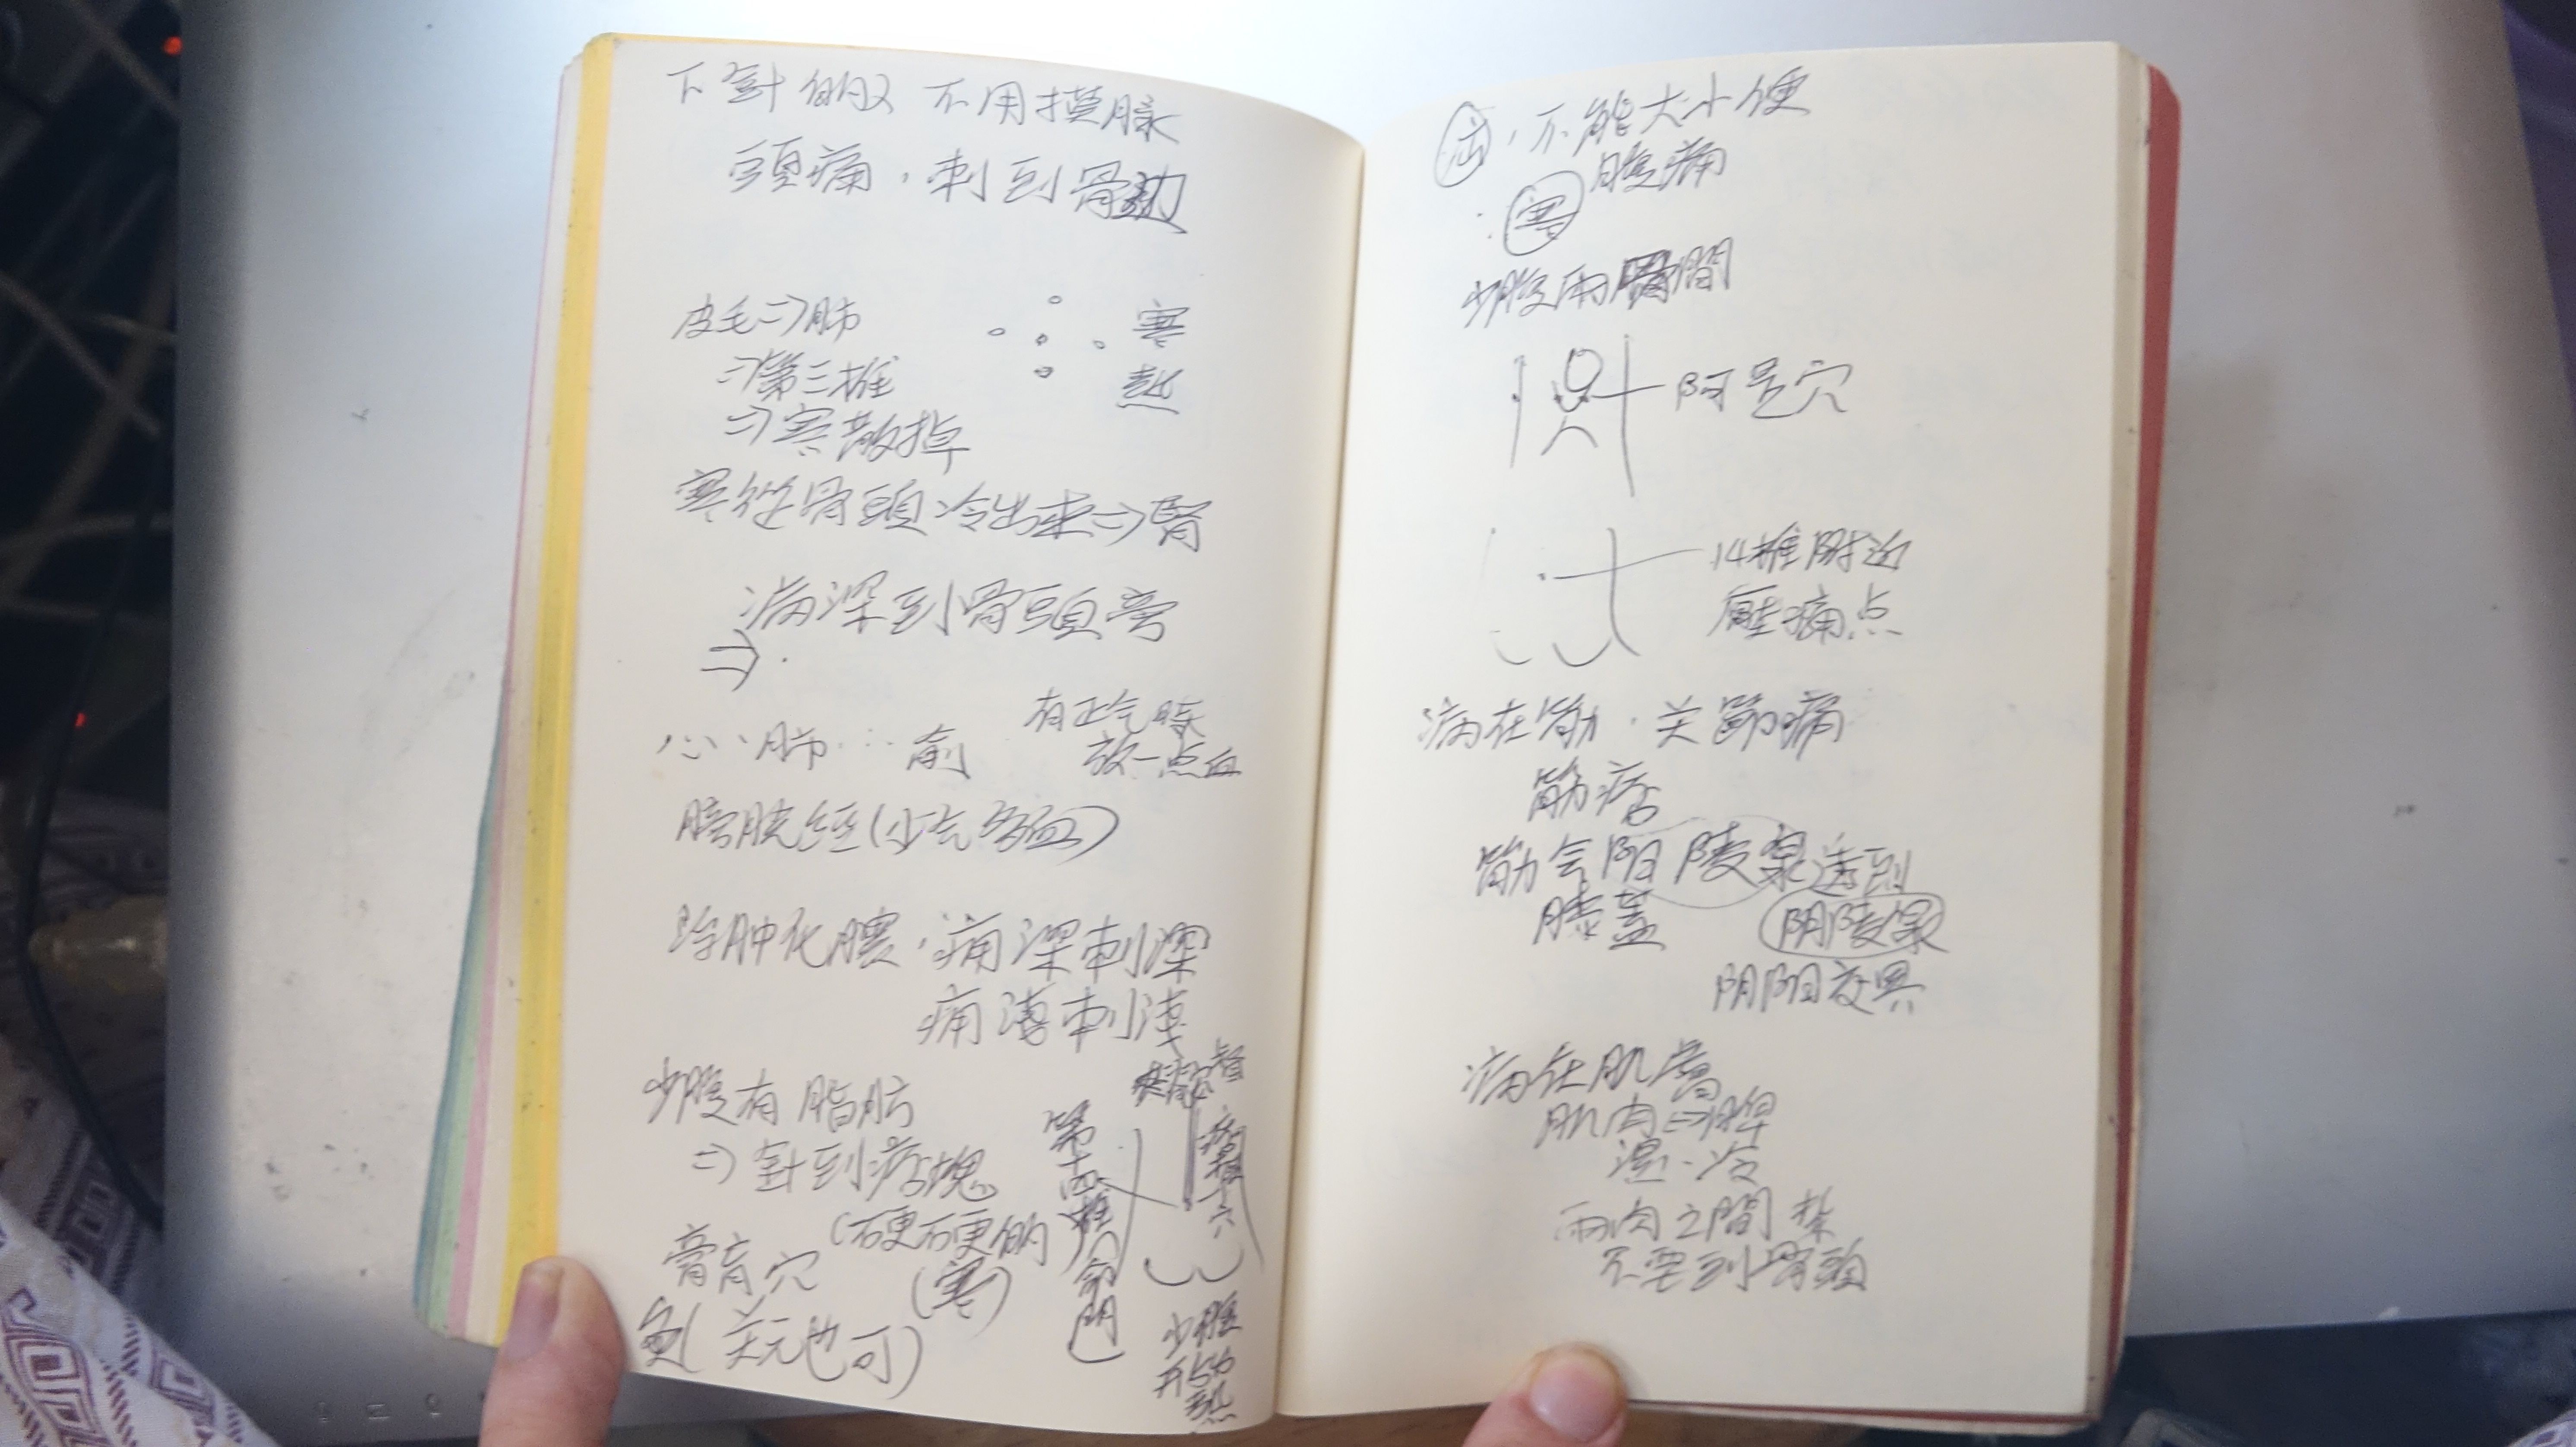 下針的 不用摸脉
頭痛，刺到骨
皮毛=>肺
=>第三椎
=>寒散掉
寒
熱
寒從骨頭冷出来=>腎
病深到骨頭旁
=>
心、肺… 俞
有正气時
放一点血
膀胱经(少气多血)
除肿化膿，病深刺深
病淺刺淺
少腹有脂肪
=>針到病塊
(硬硬的
(寒)
膏肓穴
(关元也可)
第十四椎
命門
少腹
开始
熱
疝，不能大小便
腹痛
寒
少腹兩間
阿是穴
14椎附近
壓痛点
病在筋，关節痛
筋病
筋会阳陵泉透到
膝蓋
阴陵泉
阴阳交界
病在肌膚
肌肉=>脾
濕、冷
兩肉之間 紮
不要到骨頭